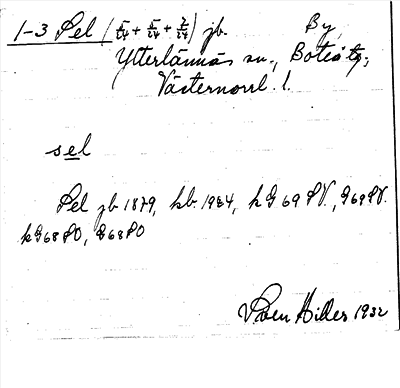 1-3 Sel (5/24 + 5/24 + 2/24) jb. By,
Ytterlännäs sn., Boteå tg.,
Västernorrl. l.
sel
Sel jb 1879, kb. 1984, kG 69 SV., G69SV.
kG68SO, G68SO
Sven Hiller 1932